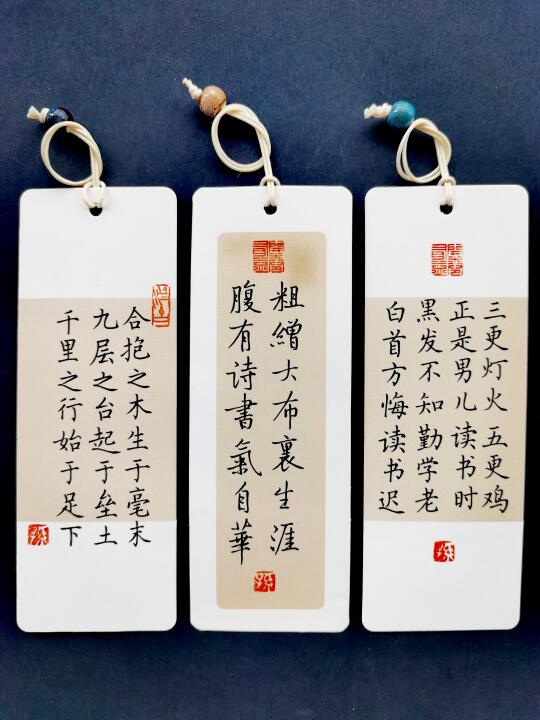 合抱之木生于毫末
九层之台起于垒土
千里之行始于足下
開卷有益
粗繒大布裏生涯
腹有诗書氣自華
開卷有益
三更灯火五更鸡
正是男儿读书时
黑发不知勤学老
白首方悔读书迟